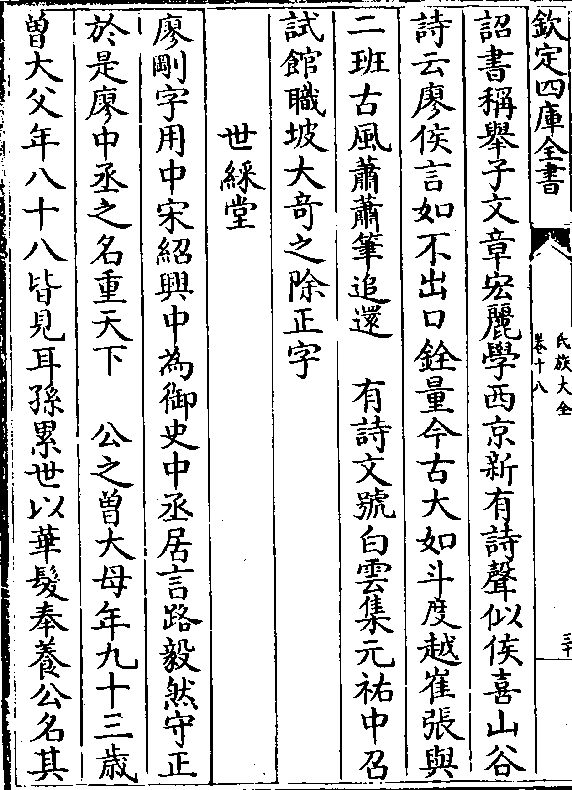 欽定四庫全書
氏族大全
卷十八
詔書稱舉子文章宏麗學西京新有詩聲似侯喜山谷
詩云廖侯言如不出口銓量今古大如斗度越崔張與
二班古風蕭蕭筆追還　有詩文號白雲集元祐中召
試館職坡大奇之除正字
世綵堂
廖剛字用中宋紹興中為御史中丞居言路毅然守正
於是廖中丞之名重天下　公之曽大母年九十三歳
曽大父年八十八皆見耳孫累世以華髮奉養公名其